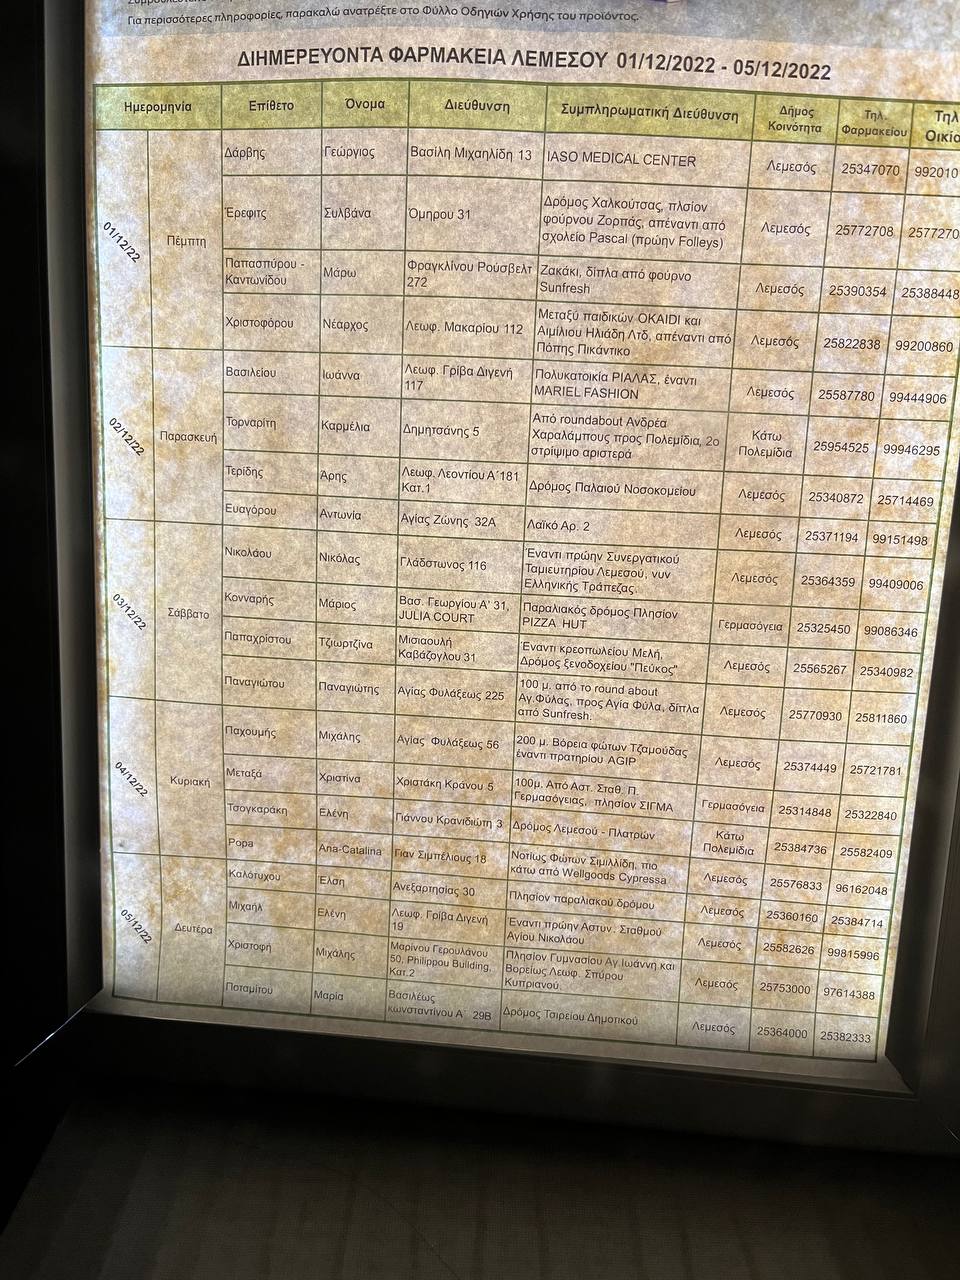 Για περισσότερες πληροφορίες, παρακαλώ ανατρέξτε στο Φύλλο Οδηγιών Χρήσης του προϊόντος.
ΔΙΗΜΕΡΕΥΟΝΤΑ ΦΑΡΜΑΚΕΙΑ ΛΕΜΕΣΟΥ 01/12/2022 - 05/12/2022
Ημερομηνία Επίθετο Όνομα Διεύθυνση Συμπληρωματική Διεύθυνση Δήμος Κοινότητα Τηλ. Φαρμακείου Τηλ
01/12/22 Πέμπτη
Δάρβης Γεώργιος Βασίλη Μιχαηλίδη 13 IASO MEDICAL CENTER Λεμεσός 25347070 992010
Έρεφιτς Συλβάνα Όμηρου 31 Δρόμος Χαλκούτσας, πλσίον φούρνου Ζορπάς, απέναντι από σχολείο Pascal (πρώην Folleys) Λεμεσός 25772708 2577270
Παπασπύρου - Καντωνίδου Μάρω Φραγκλίνου Ρούσβελτ 272 Ζακάκι, δίπλα από φούρνο Sunfresh Λεμεσός 25390354 25388448
Χριστοφόρου Νέαρχος Λεωφ. Μακαρίου 112 Μεταξύ παιδικών OKAIDI και Αιμίλιου Ηλιάδη Λτδ, απέναντι από Πόπης Πικάντικο Λεμεσός 25822838 99200860
02/12/22 Παρασκευή
Βασιλείου Ιωάννα Λεωφ. Γρίβα Διγενή 117 Πολυκατοικία ΡΙΑΛΑΣ, έναντι MARIEL FASHION Λεμεσός 25587780 99444906
Τορναρίτη Καρμέλια Δημητσάνης 5 Από roundabout Ανδρέα Χαραλάμπους προς Πολεμίδια, 2ο στρίψιμο αριστερά Κάτω Πολεμίδια 25954525 99946295
Τερίδης Άρης Λεωφ. Λεοντίου Α΄181 Κατ.1 Δρόμος Παλαιού Νοσοκομείου Λεμεσός 25340872 25714469
Ευαγόρου Αντωνία Αγίας Ζώνης 32Α Λαϊκό Αρ. 2 Λεμεσός 25371194 99151498
03/12/22 Σάββατο
Νικολάου Νικόλας Γλάδστωνος 116 Έναντι πρώην Συνεργατικού Ταμιευτηρίου Λεμεσού, νυν Ελληνικής Τράπεζας. Λεμεσός 25364359 99409006
Κονναρής Μάριος Βασ. Γεωργίου Α' 31, JULIA COURT Παραλιακός δρόμος Πλησίον PIZZA HUT Γερμασόγεια 25325450 99086346
Παπαχρίστου Τζιωρτζίνα Μισιαουλή Καβάζογλου 31 Έναντι κρεοπωλείου Μελή, Δρόμος ξενοδοχείου "Πεύκος" Λεμεσός 25565267 25340982
Παναγιώτου Παναγιώτης Αγίας Φυλάξεως 225 100 μ. από το round about Αγ.Φύλας, προς Αγία Φύλα, δίπλα από Sunfresh. Λεμεσός 25770930 25811860
04/12/22 Κυριακή
Παχουμής Μιχάλης Αγίας Φυλάξεως 56 200 μ. Βόρεια φώτων Τζαμούδας έναντι πρατηρίου AGIP Λεμεσός 25374449 25721781
Μεταξά Χριστίνα Χριστάκη Κράνου 5 100μ. Από Αστ. Σταθ. Π. Γερμασόγειας, πλησίον ΣΙΓΜΑ Γερμασόγεια 25314848 25322840
Τσογκαράκη Ελένη Γιάννου Κρανιδιώτη 3 Δρόμος Λεμεσού - Πλατρών Κάτω Πολεμίδια 25384736 25582409
Popa Ana-Catalina Γιαν Σιμπέλιους 18 Νοτίως Φώτων Σιμιλλίδη, πιο κάτω από Wellgoods Cypressa Λεμεσός 25576833 96162048
05/12/22 Δευτέρα
Καλότυχου Έλση Ανεξαρτησίας 30 Πλησίον παραλιακού δρόμου Λεμεσός 25360160 25384714
Μιχαήλ Ελένη Λεωφ. Γρίβα Διγενή 19 Έναντι πρώην Αστυν. Σταθμού Αγίου Νικολάου Λεμεσός 25582626 99815996
Χριστοφή Μιχάλης Μαρίνου Γερουλάνου 50, Philippou Building, Κατ.2 Πλησίον Γυμνασίου Αγ.Ιωάννη και Βορείως Λεωφ. Σπύρου Κυπριανού. Λεμεσός 25753000 97614388
Ποταμίτου Μαρία Βασιλέως κωνσταντίνου Α΄ 29Β Δρόμος Τσιρείου Δημοτικού Λεμεσός 25364000 25382333